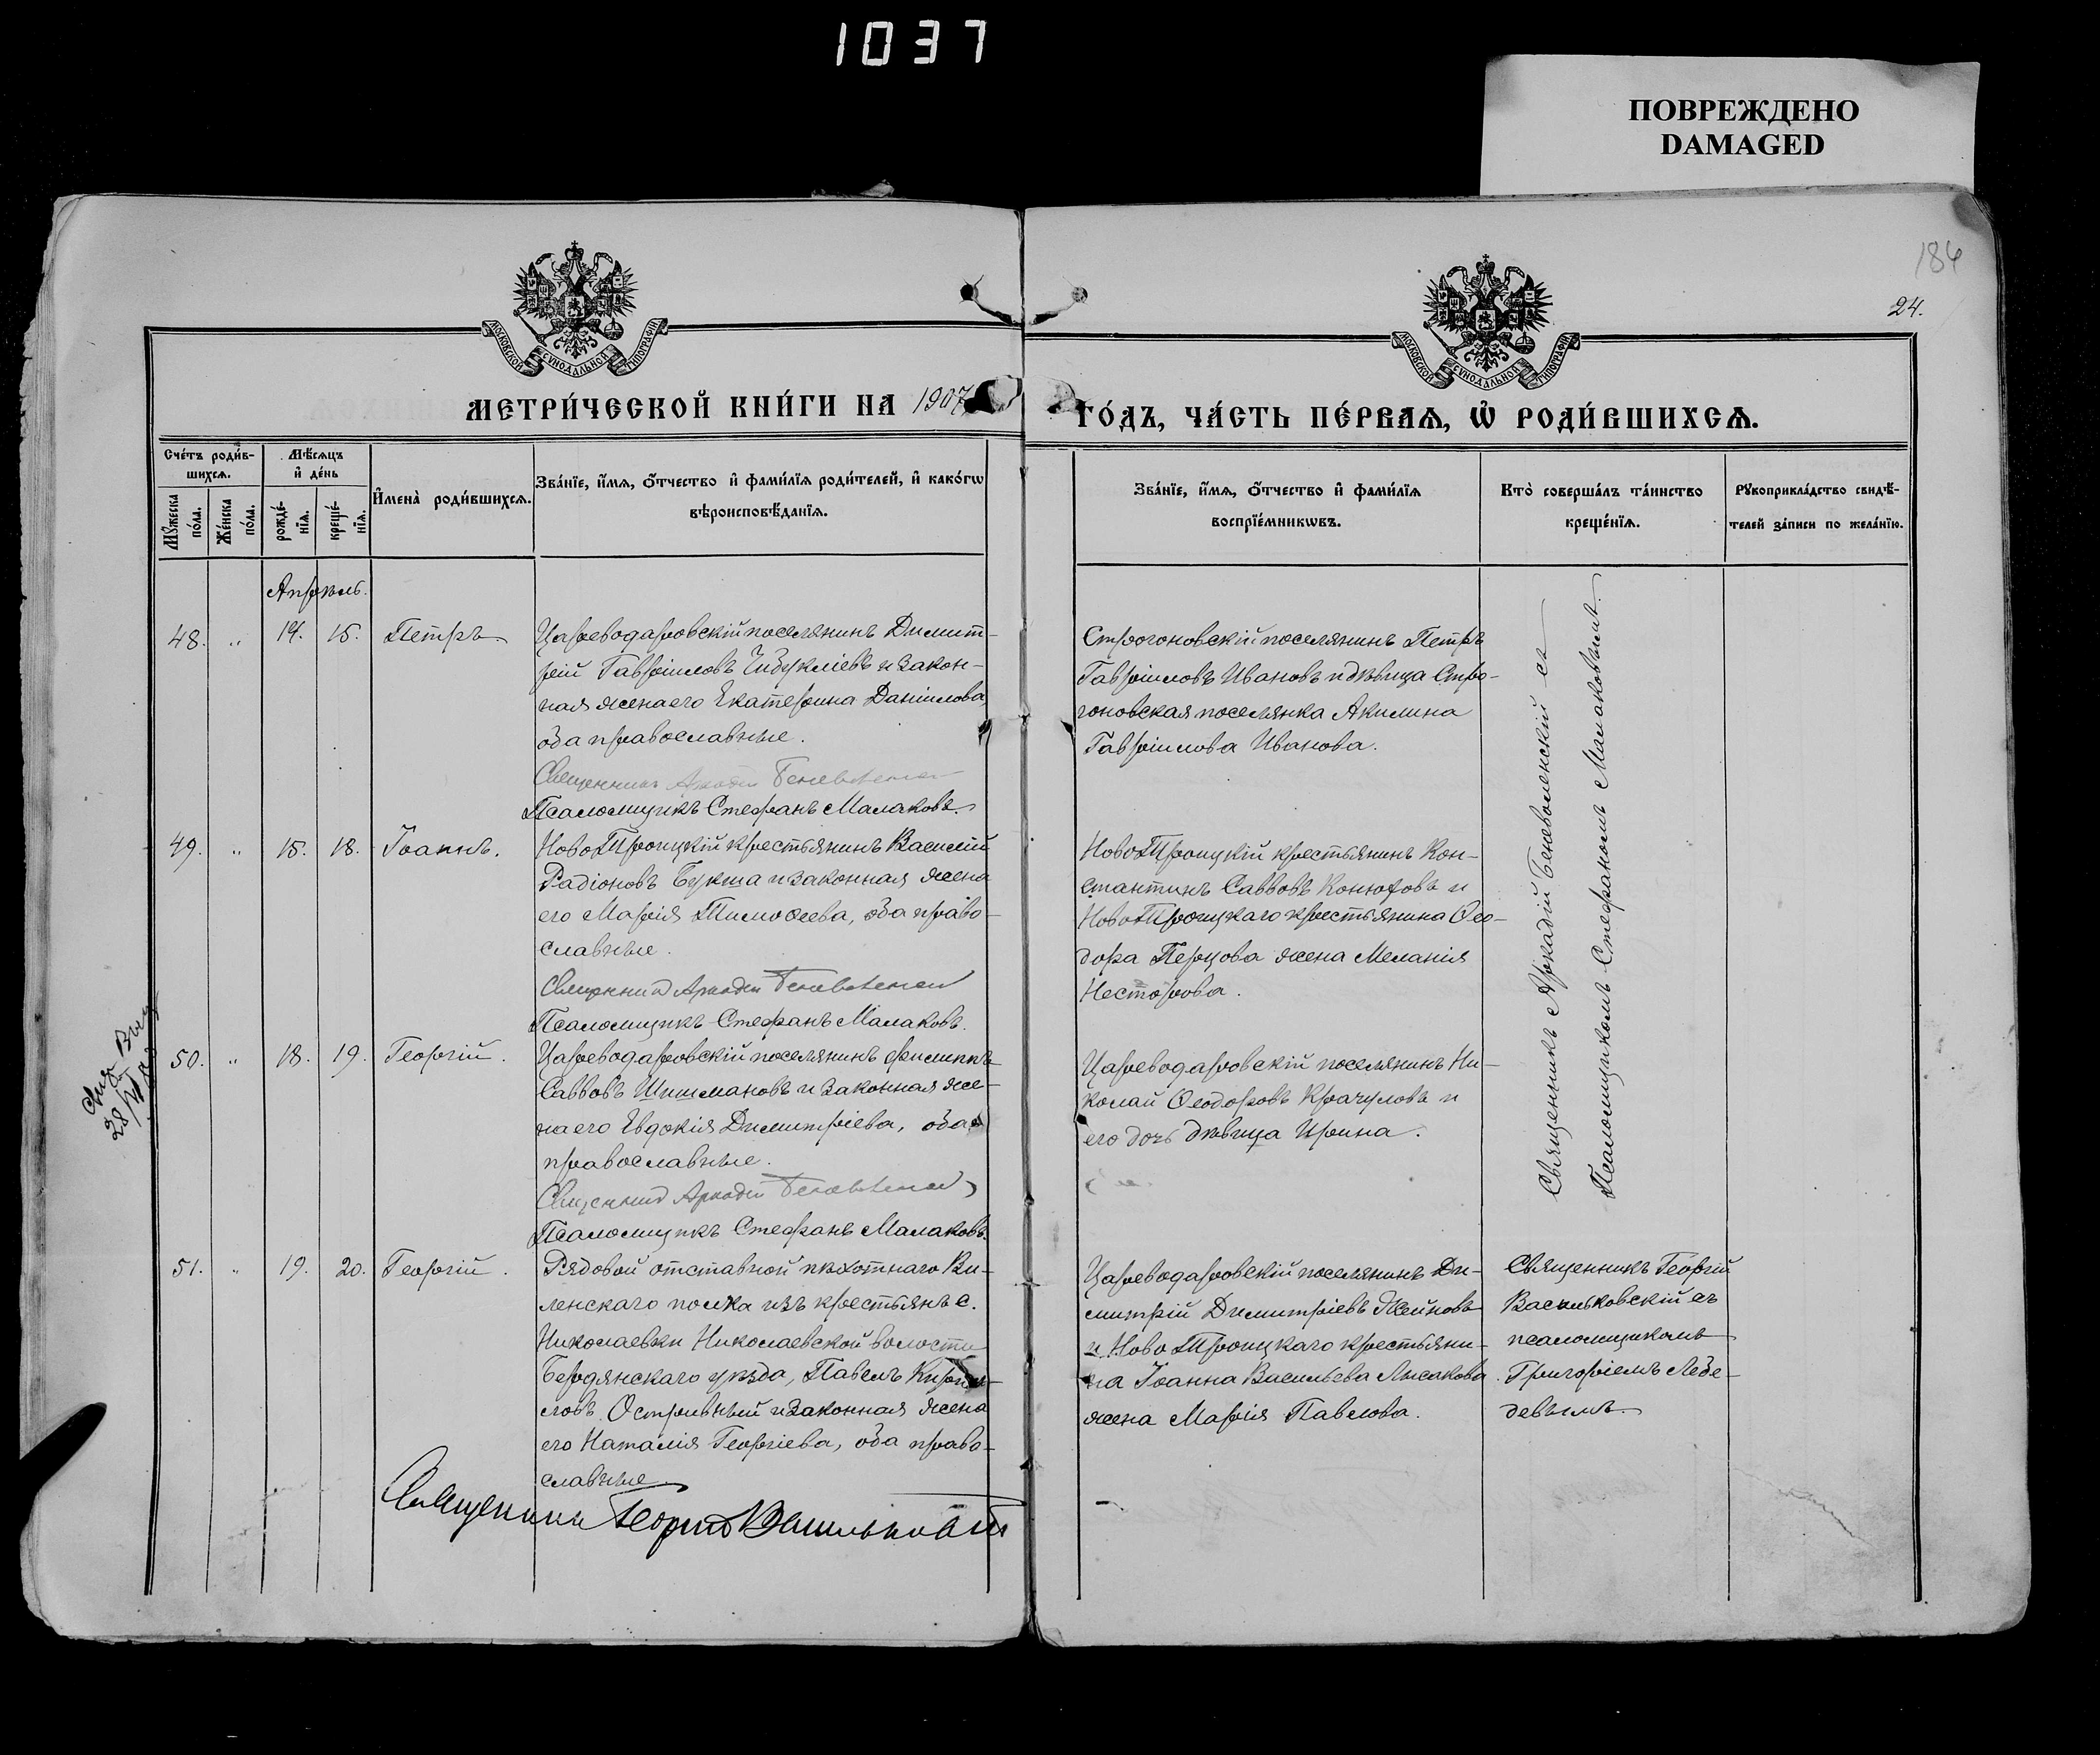 1037
ПОВРЕЖДЕНО
DAMAGED
184
24.
МОСКОВСКОЙ СѴНОДАЛЬНОЙ ТИПОГРАФІИ
МОСКОВСКОЙ СѴНОДАЛЬНОЙ ТИПОГРАФІИ
МЕТРИ́ЧЕСКОЙ КНИ́ГИ НА 1907
ГО́ДЪ, ЧА́СТЬ ПЕ́РВАѦ, Ѡ҆ РОДИ́ВШИХСѦ.
Сче́тъ роди́в-
шихсѧ.
Мꙋ́жеска по́ла.
Же́нска по́ла.
Мѣ́сѧцъ
и҆ де́нь
рожде́-
нїѧ.
креще́-
нїѧ.
И҆мена̀ роди́вшихсѧ.
Зва́нїе, и҆́мѧ, ѻ҆́тчество и҆ фами́лїѧ роди́телей, и҆ како́гѡ
вѣроисповѣ́данїѧ.
Зва́нїе, и҆́мѧ, ѻ҆́тчество и҆ фами́лїѧ
воспрїе́мникѡвъ.
Кто̀ соверша́лъ та́инство
креще́нїѧ.
Рꙋкоприкла́дство свидѣ́-
телей за́писи по жела́нїю.
Апрѣль.
48. " 14. 15. Петръ
Цареводаровскій поселянинъ Димит-
рій Гавріиловъ Чибукліевъ и закон-
ная жена его Екатерина Даніилова,
оба православные.
Священникъ Аркадій Беневоленскій
Псаломщикъ Стефанъ Малаковъ.
Строгоновскій поселянинъ Петръ
Гавріиловъ Ивановъ и дѣвица Стро-
гоновская поселянка Акилина
Гавріилова Иванова.
49. " 15. 18. Іоаннъ.
НовоТроицкій крестьянинъ Василій
Радіоновъ Букша и законная жена
его Марія Тимоѳеева, оба право-
славные.
Священникъ Аркадій Беневоленскій
Псаломщикъ Стефанъ Малаковъ.
НовоТроицкій крестьянинъ Кон-
стантинъ Саввовъ Конюховъ и
НовоТроицкаго крестьянина Ѳео-
дора Перцова жена Меланія
Несторова.
28
50. " 18. 19. Георгій.
Цареводаровскій поселянинъ Филиппъ
Саввовъ Шишмановъ и законная же-
на его Евдокія Димитріева, оба
православные.
Священникъ Аркадій Беневоленскій
Псаломщикъ Стефанъ Малаковъ.
Цареводаровскій поселянинъ Ни-
колай Ѳеодоровъ Крачуловъ и
его дочь дѣвица Ирина.
Священникъ Аркадій Беневоленскій съ
Псаломщикомъ Стефаномъ Малаковымъ.
51. " 19. 20. Георгій.
Рядовой отставной пѣхотнаго Ви-
ленскаго полка изъ крестьянъ с.
Николаевки Николаевской волости
Бердянскаго уѣзда, Павелъ Кирил-
ловъ Остривный и законная жена
его Наталія Георгіева, оба право-
славные
Священникъ Георгій Васильковскій
Цареводаровскій поселянинъ Ди-
митрій Димитріевъ Жейновъ
и НовоТроицкаго крестьяни-
на Іоанна Васильева Лысакова
жена Марія Павлова.
Священникъ Георгій
Васильковскій съ
псаломщикомъ
Григоріемъ Лебе-
девымъ.